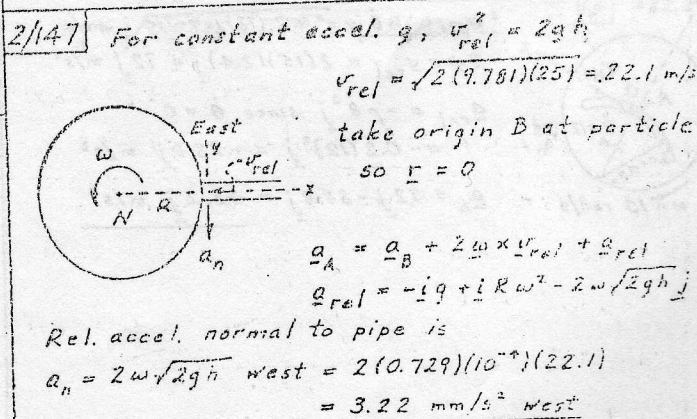 2/147 For constant accel. g, v²rel = 2gh
vrel = √2(9.781)(25) = 22.1 m/s
East
y
take origin B at particle
ω
vrel
so r = 0
a
x
N
an
aA = aB + 2ω×vrel + arel
arel = -ig + iRω² - 2ω√2gh j
Rel. accel. normal to pipe is
an = 2ω√2gh west = 2(0.729)(10⁻⁴)(22.1)
= 3.22 mm/s² west